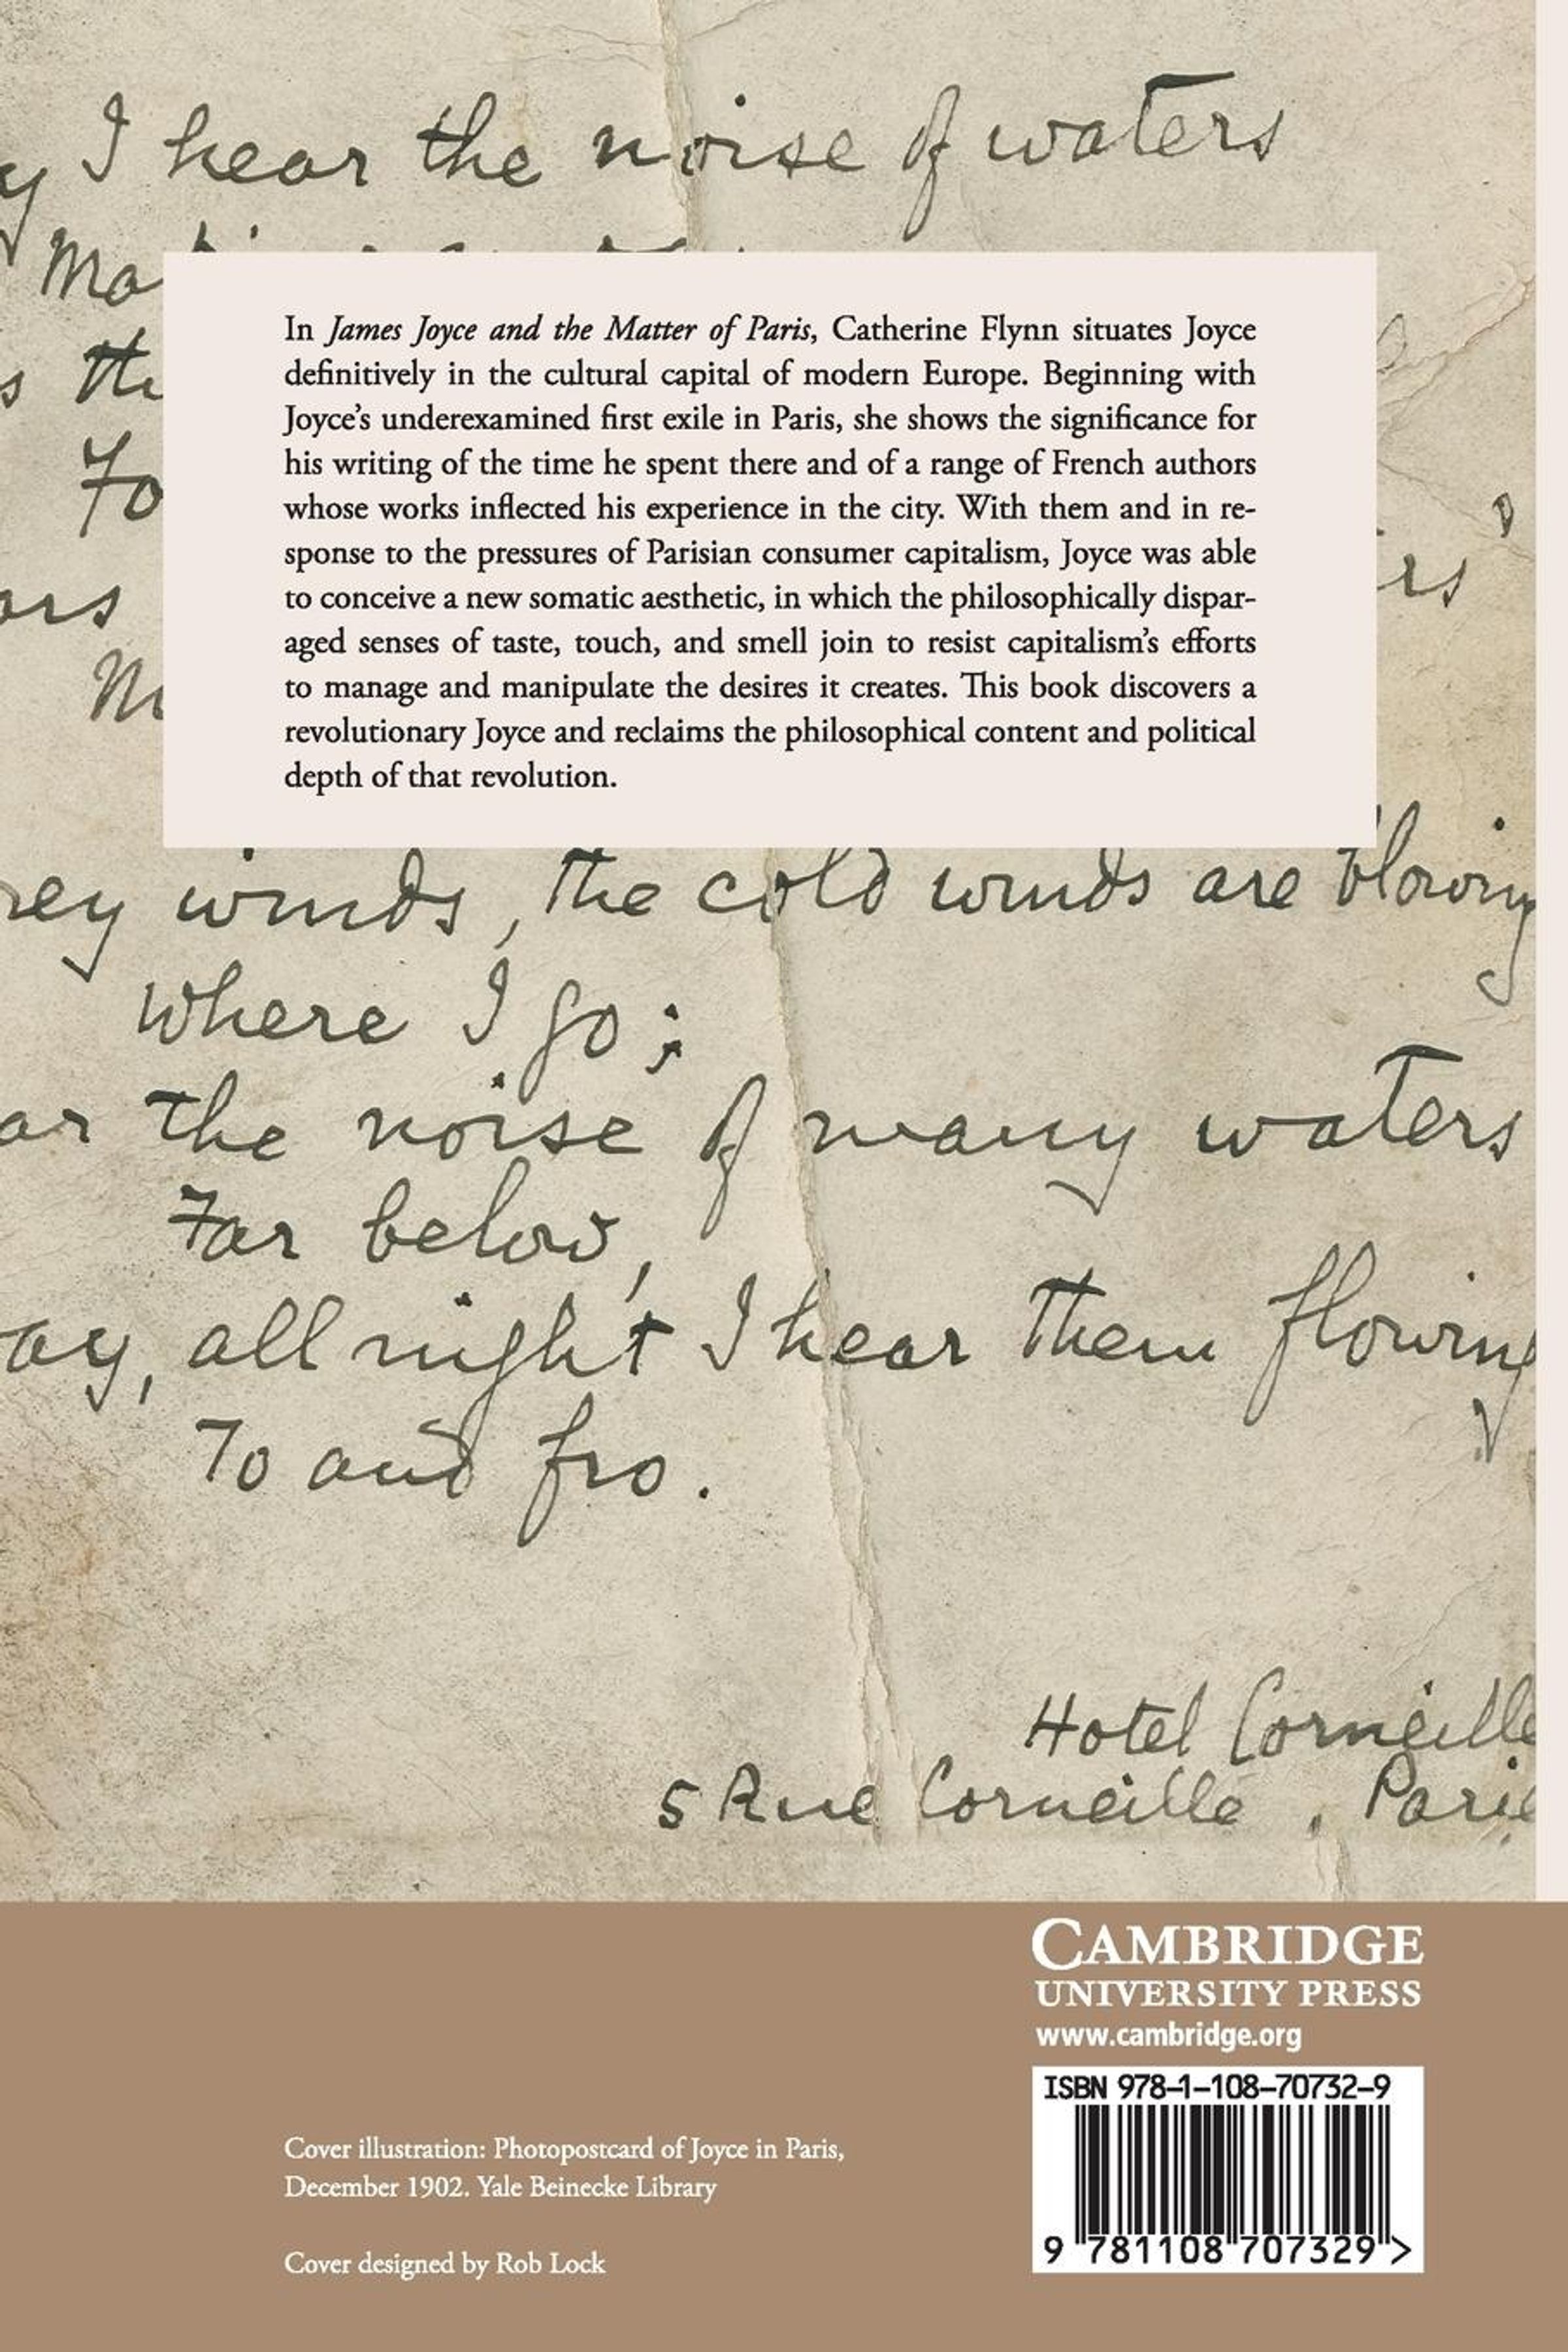 I hear the noise of waters
Ma
s
Fo
In James Joyce and the Matter of Paris, Catherine Flynn situates Joyce
definitively in the cultural capital of modern Europe. Beginning with
Joyce's underexamined first exile in Paris, she shows the significance for
his writing of the time he spent there and of a range of French authors
whose works inflected his experience in the city. With them and in re-
sponse to the pressures of Parisian consumer capitalism, Joyce was able
to conceive a new somatic aesthetic, in which the philosophically dispar-
aged senses of taste, touch, and smell join to resist capitalism's efforts
to manage and manipulate the desires it creates. This book discovers a
revolutionary Joyce and reclaims the philosophical content and political
depth of that revolution.
rey winds, the cold winds are blowing
where I go;
ar the noise of many waters
Far below,
ay, all night I hear them flowing
To and fro.
Hotel Corneille
5 Rue Corneille, Paris
CAMBRIDGE
UNIVERSITY PRESS
www.cambridge.org
ISBN 978-1-108-70732-9
9 781108 707329 >
Cover illustration: Photopostcard of Joyce in Paris,
December 1902. Yale Beinecke Library
Cover designed by Rob Lock